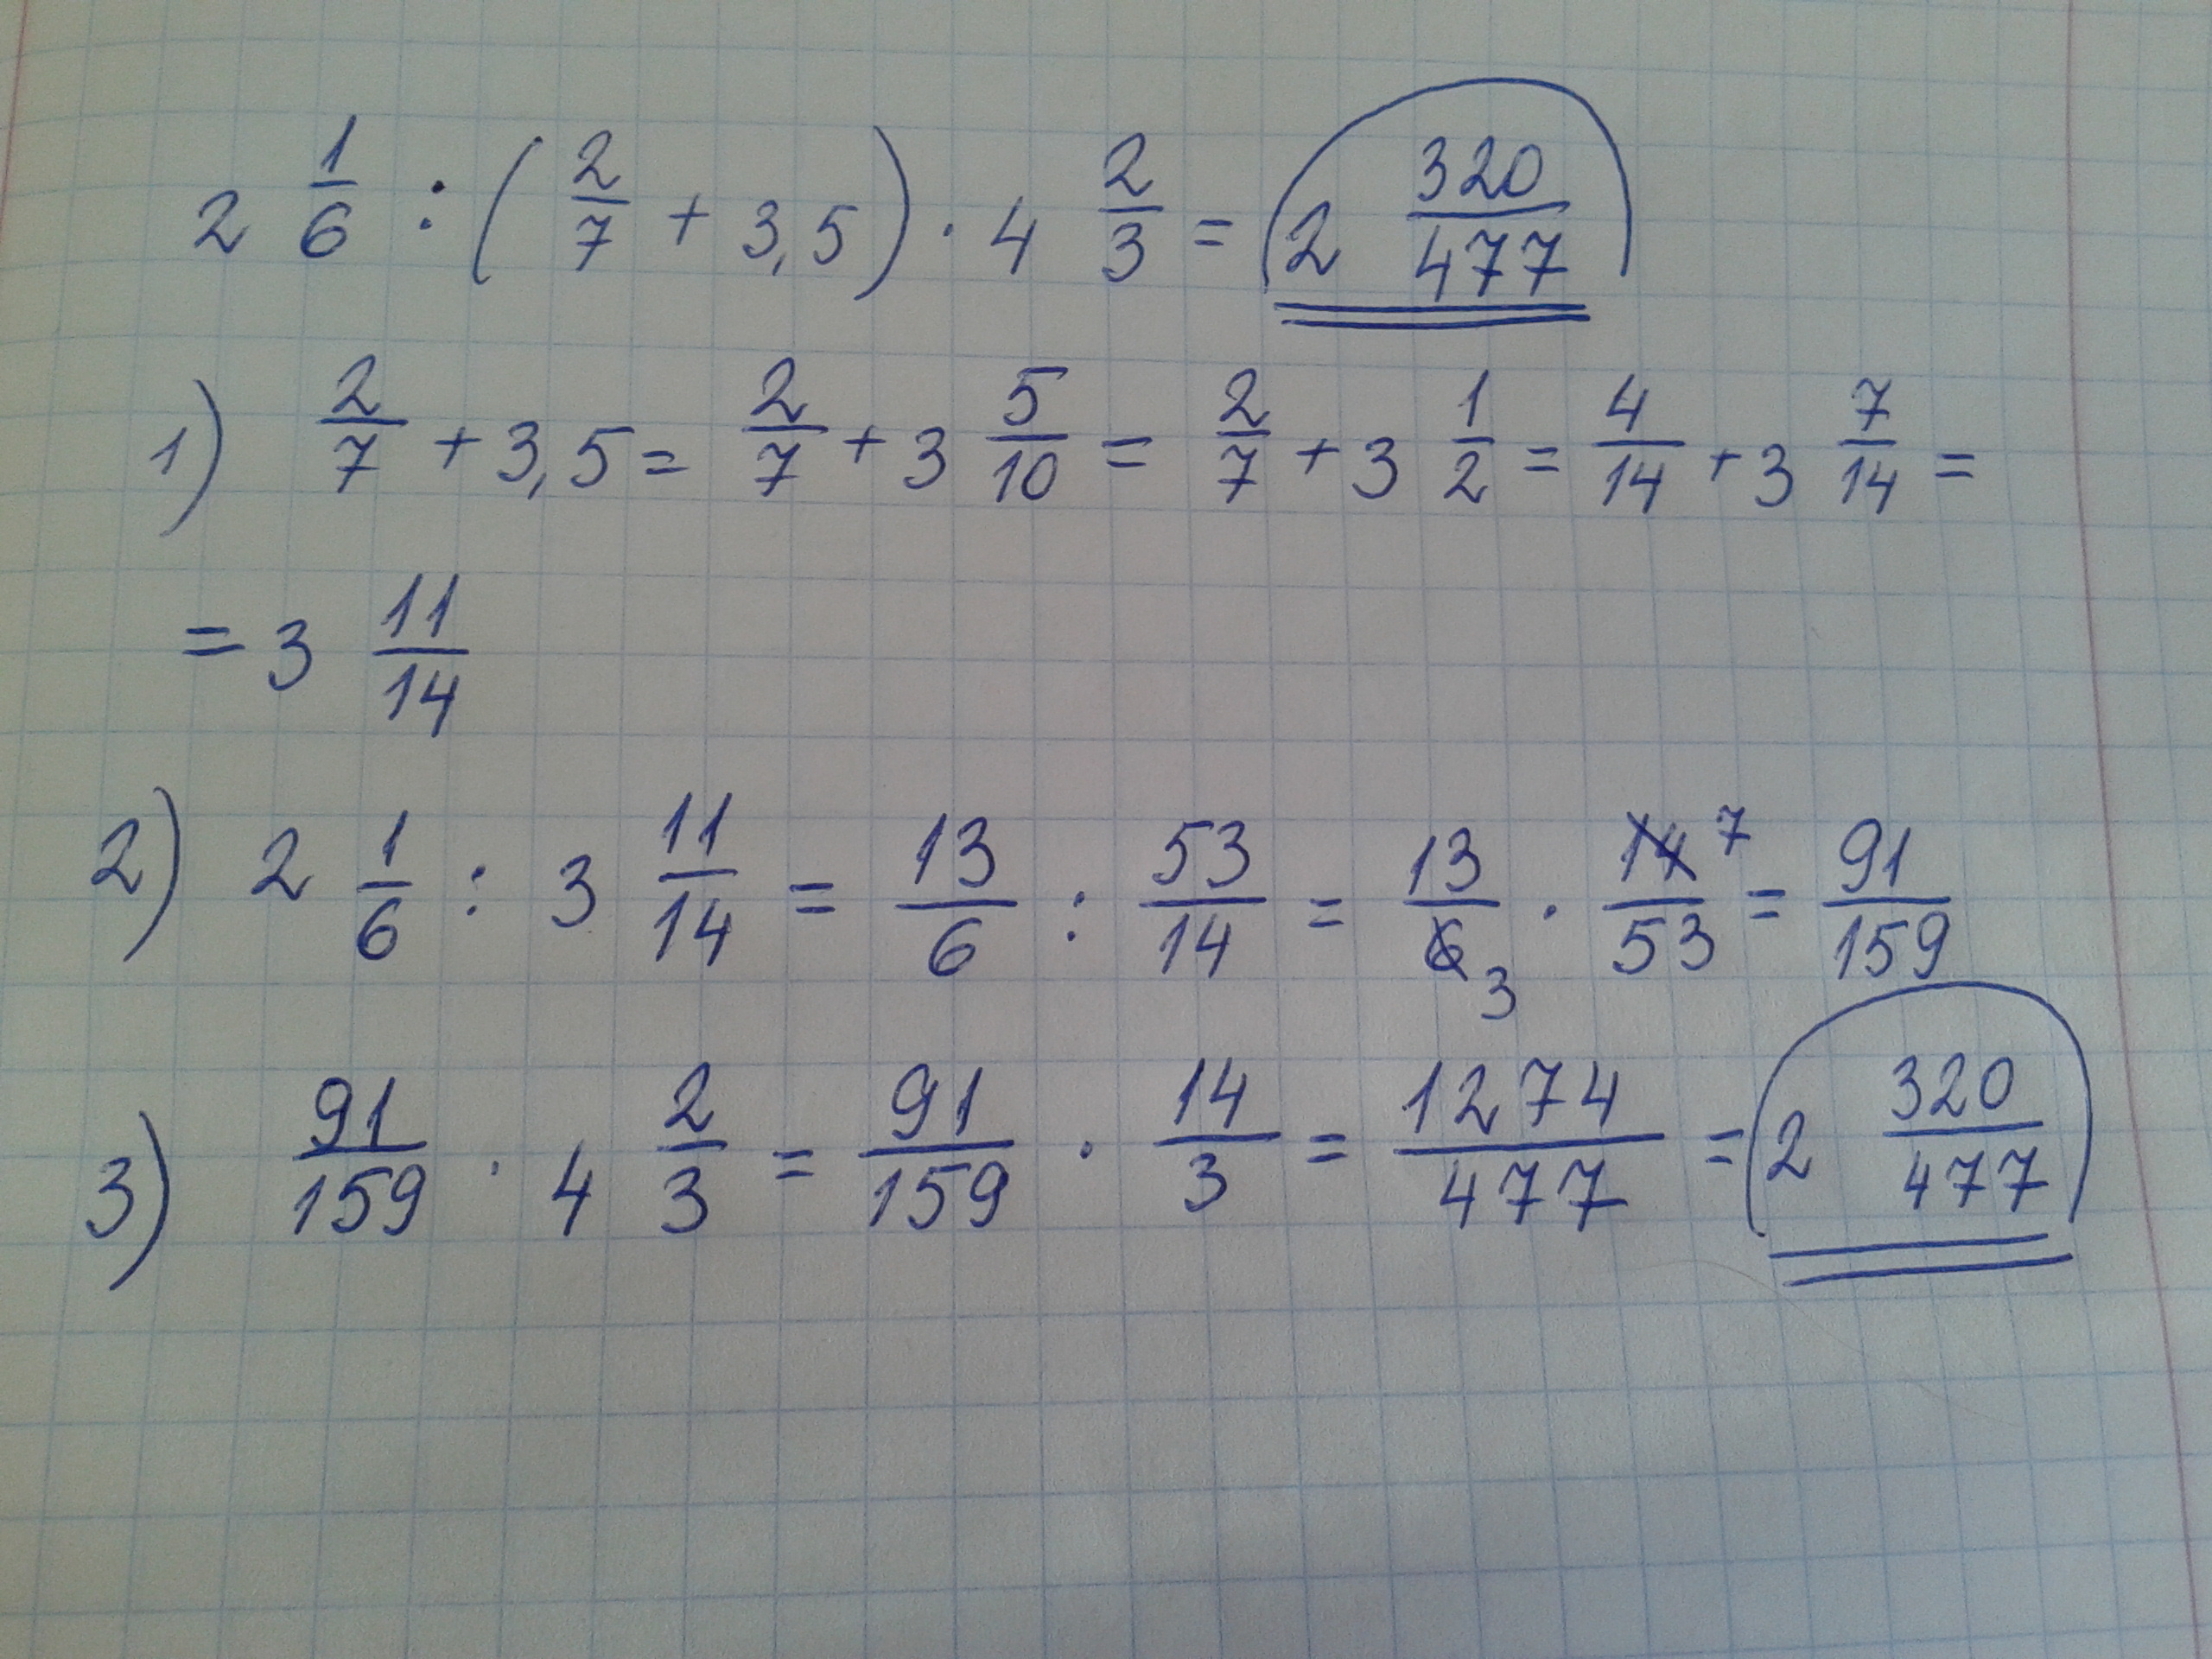 2 1/6 : (2/7 + 3,5) · 4 2/3 = 2 320/477
1) 2/7 + 3,5 = 2/7 + 3 5/10 = 2/7 + 3 1/2 = 4/14 + 3 7/14 =
= 3 11/14
2) 2 1/6 : 3 11/14 = 13/6 : 53/14 = 13/6 3 · 14 7/53 = 91/159
3) 91/159 · 4 2/3 = 91/159 · 14/3 = 1274/477 = 2 320/477